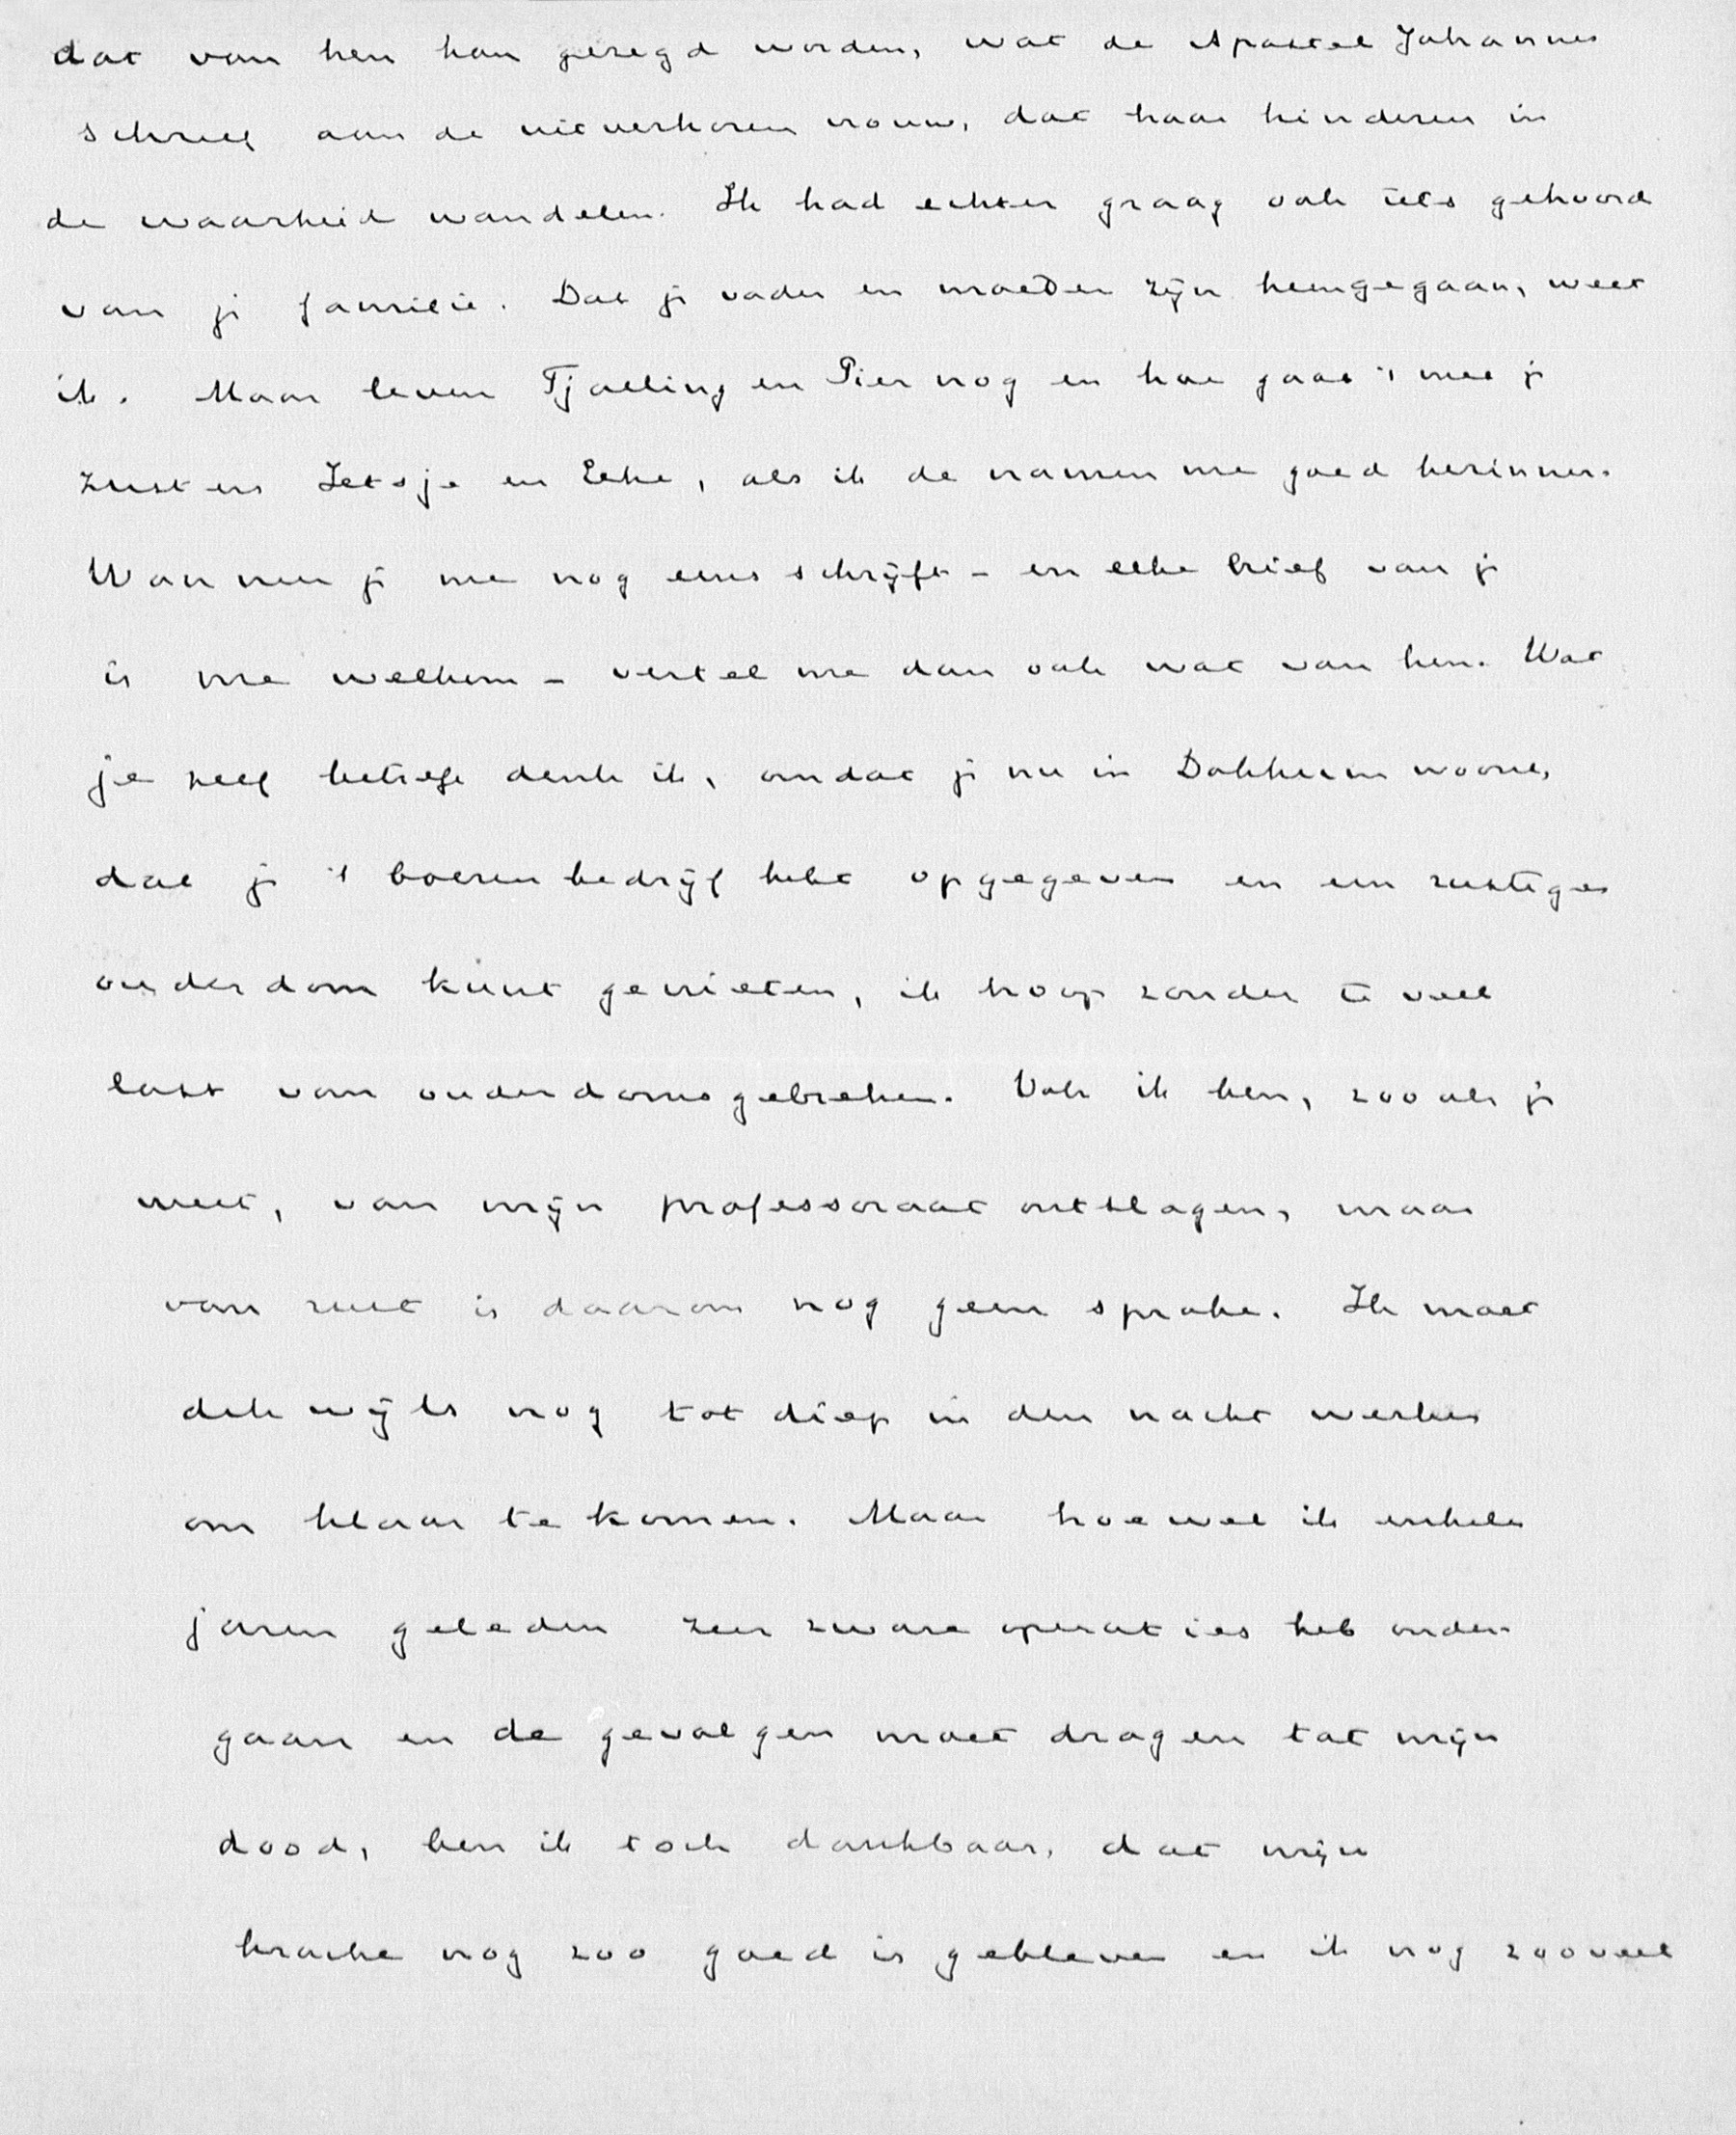 dat van hen kan gezegd worden, wat de Apostel Johannes
schreef aan de uitverkoren vrouw, dat haar kinderen in
de waarheid wandelen. Ik had echter graag ook iets gehoord
van je familie. Dat je vader en moeder zijn heengegaan, weet
ik. Maar leven Tjalling en Pier nog en hoe gaat 't met je
zusters Ietsje en Eeke, als ik de namen me goed herinner.
Wanneer je me nog eens schrijft - en elke brief van je
is me welkom - vertel me dan ook wat van hen. Wat
je zelf betreft denk ik, omdat je nu in Dokkum woont,
dat je 't boerenbedrijf hebt opgegeven en een rustigen
ouderdom kunt genieten, ik hoop zonder te veel
last van ouderdomsgebreken. Ook ik ben, zooals je
weet, van mijn professoraat ontslagen, maar
van rust is daarom nog geen sprake. Ik moet
dikwijls nog tot diep in den nacht werken
om klaar te komen. Maar hoewel ik enkele
jaren geleden zeer zware operaties heb onder-
gaan en de gevolgen moet dragen tot mijn
dood, ben ik toch dankbaar, dat mijn
kracht nog zoo goed is gebleven en ik nog zooveel